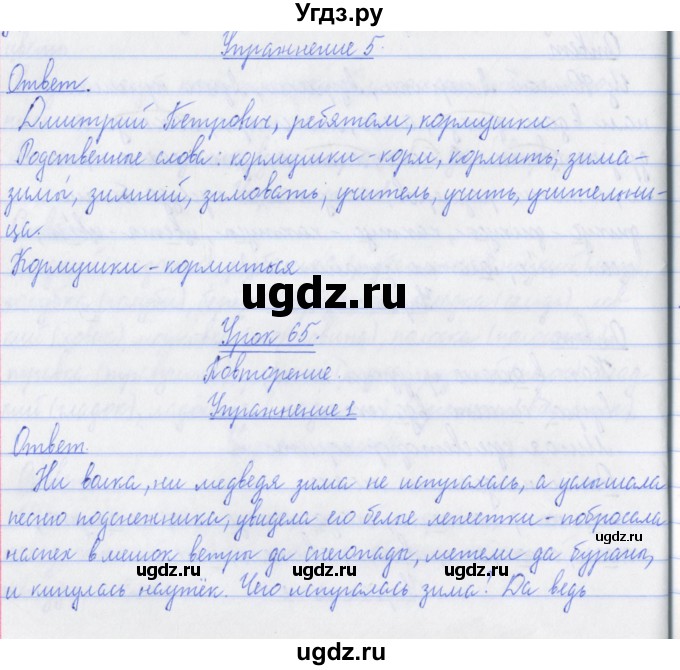 Угдз.ру
Упражнение 5.
Ответ.
Дмитрий Петрович, ребятам, кормушки
Родственные слова: кормушки - корм, кормить; зима-
зимы́, зимний, зимовать; учитель, учить, учительни-
ца.
Кормушки - кормиться
ugdz.ru
Урок 65.
Повторение.
Упражнение 1
Ответ.
Ни волка, ни медведя зима не испугалась, а услышала
песню подснежника, увидела его белые лепестки - побросала
наспех в мешок ветры да снегопады, метели да бураны,
ugdz.ru ugdz.ru ugdz.ru
и кинулась наутёк. Чего испугалась зима! Да ведь
ugdz.ru